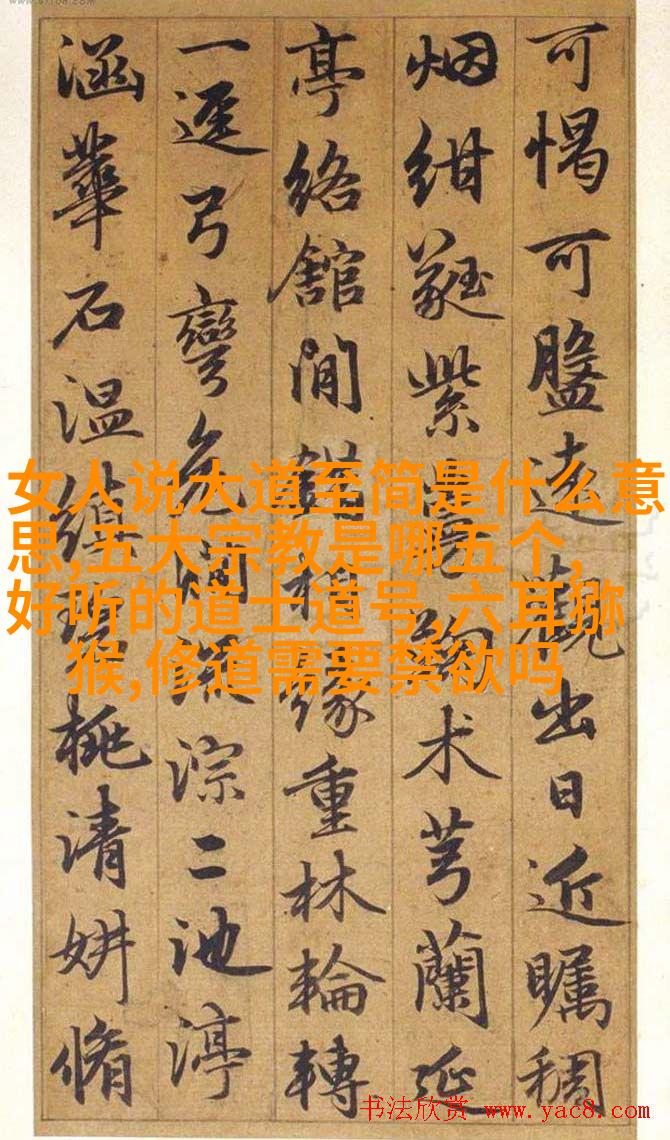 可愒可盤遠觀出日近矚稠
烟紺蕤紫术芎蘭延
亭絡館間緣重林輪轉
一逕弓彎深淙二池渟
涵華石温縝桃清妍脩
女人说大道至简是什么意
思,五大宗教是哪五个,
好听的道士道号,六耳猕
猴,修道需要禁欲吗
书法欣赏 www.yac8.com